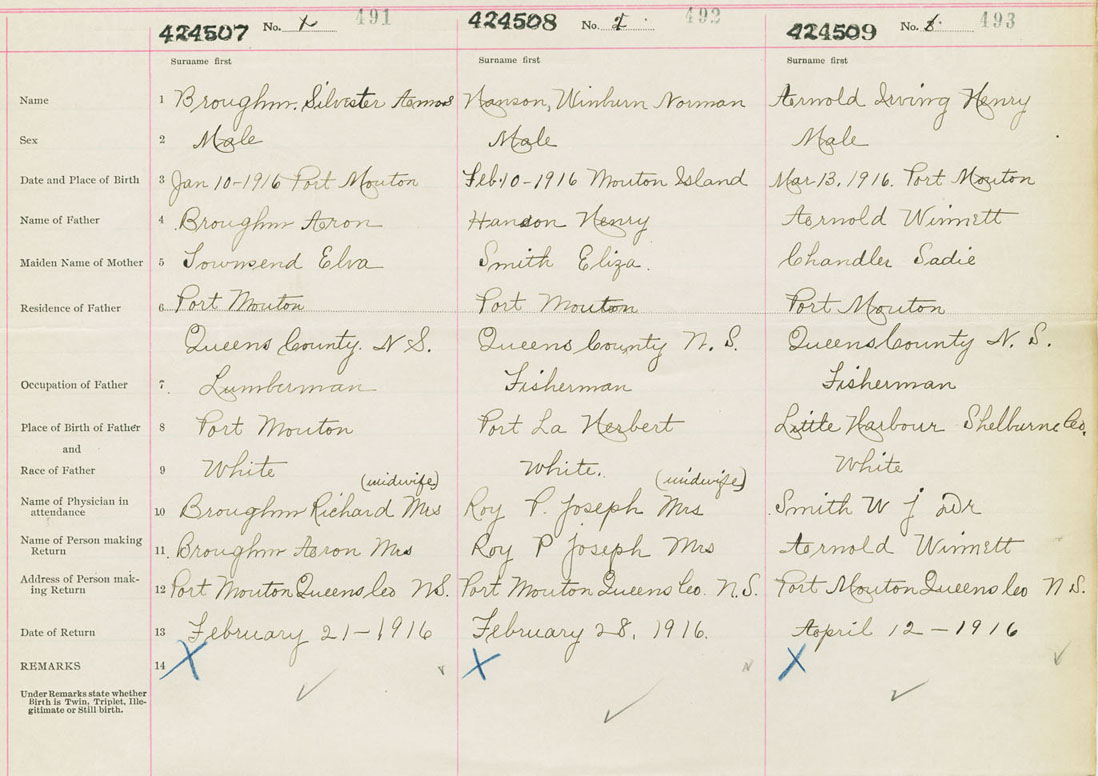 424507 No. 1 491 424508 No. 2 492 424509 No. 3 493
Surname first Surname first Surname first
Name 1 Broughm. Silvester Aamos Hanson, Winburn Norman Aarnold Irving Henry
Sex 2 Male Male Male
Date and Place of Birth 3 Jan 10-1916 Port Mouton Feb. 10-1916 Mouton Island Mar. 13. 1916. Port Mouton
Name of Father 4 Broughm Aaron Hanson Henry Aarnold Winnett
Maiden Name of Mother 5 Townsend Elva Smith Eliza. Chandler Sadie
Residence of Father 6 Port Mouton Port Mouton Port Mouton
Queens County. N S. Queens County N. S. Queens County N. S.
Occupation of Father 7 Lumberman Fisherman Fisherman
Place of Birth of Father 8 Port Mouton Port La Herbert Little Harbour Shelburne Co.
and
Race of Father 9 White White. White
(midwife) (midwife)
Name of Physician in
attendance 10 Broughm Richard Mrs Roy P. Joseph Mrs Smith W J Dr
Name of Person making
Return 11 Broughm Aaron Mrs Roy P Joseph Mrs Aarnold Winnett
Address of Person mak-
ing Return 12 Port Mouton Queens Co N.S. Port Mouton Queens Co. N.S. Port Mouton Queens Co N S.
Date of Return 13 February 21-1916 February 28, 1916. April 12-1916
REMARKS 14 X X X
Under Remarks state whether
Birth is Twin, Triplet, Ille-
gitimate or Still birth.